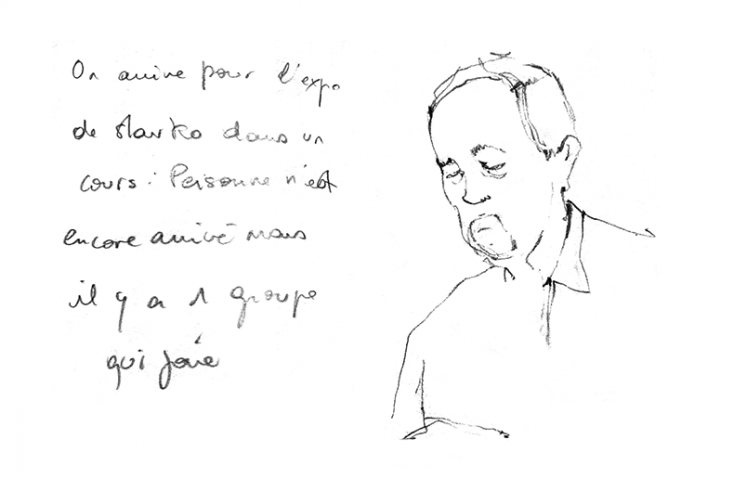 On arrive pour l'expo
de Marko dans un
cours : Personne n'est
encore arrivé mais
il y a 1 groupe
qui joue